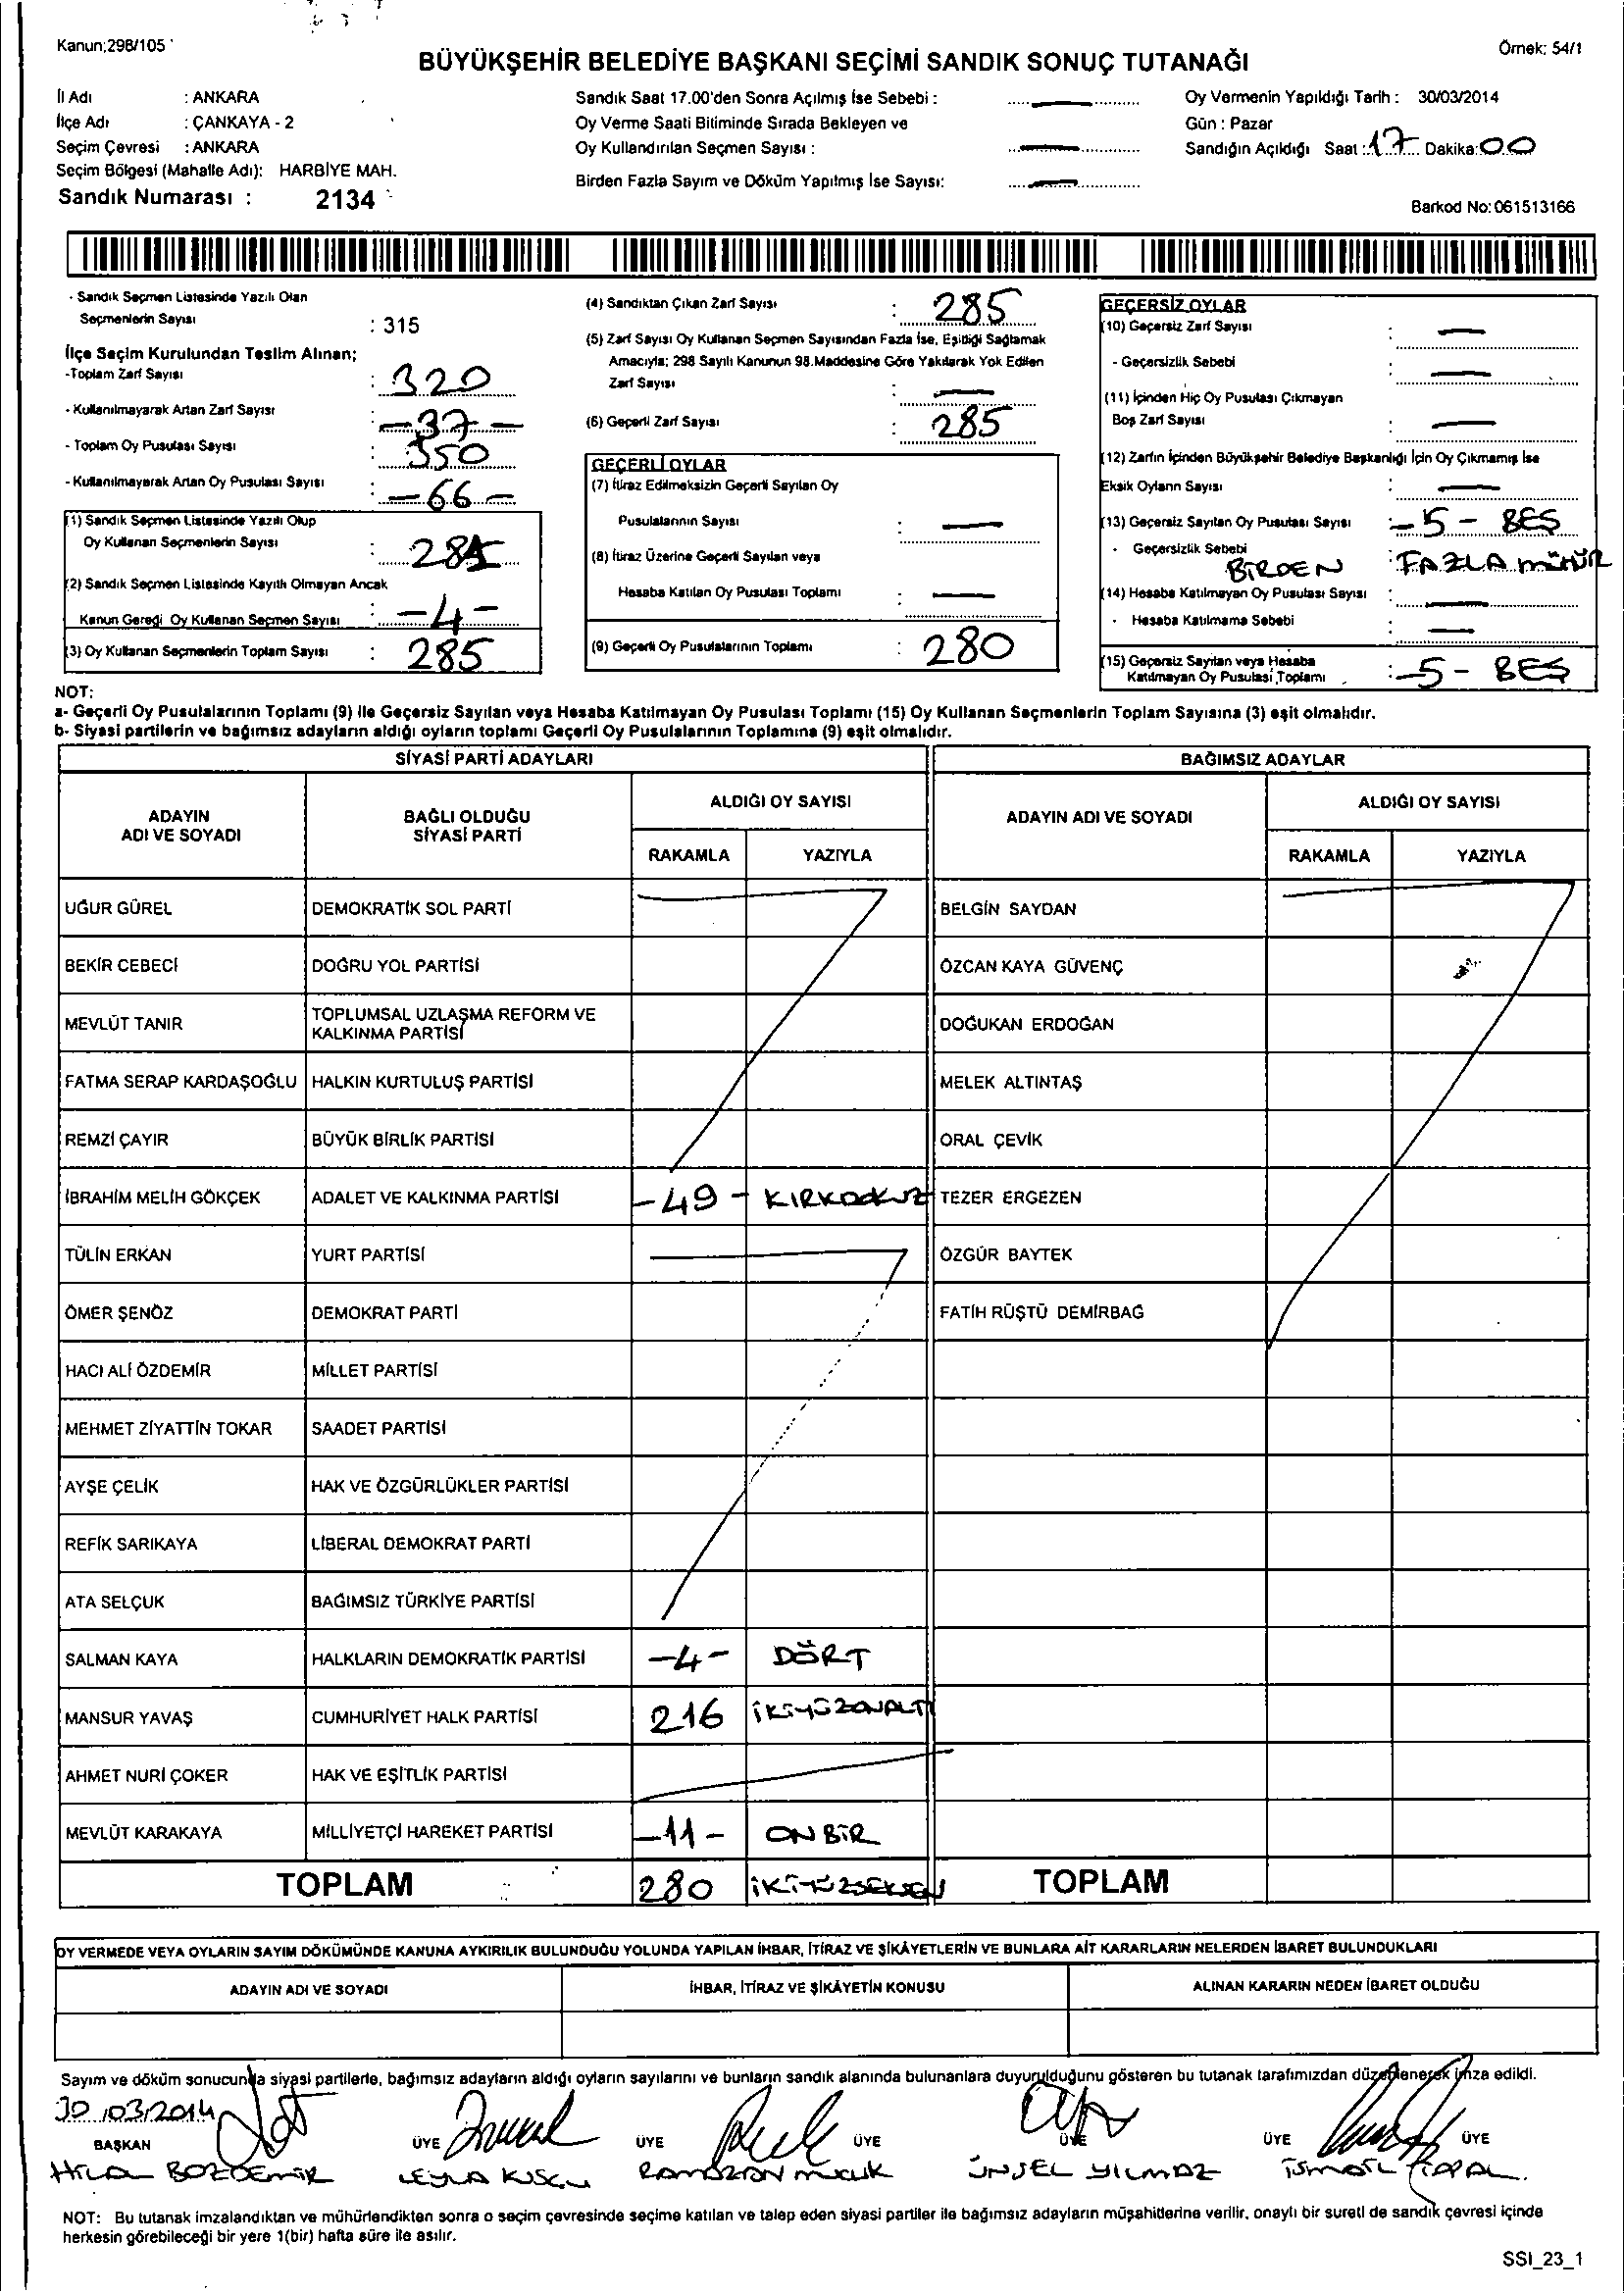 Kanun;298/105
Örnek: 54/1
BÜYÜKŞEHİR BELEDİYE BAŞKANI SEÇİMİ SANDIK SONUÇ TUTANAĞI
İl Adı : ANKARA
İlçe Adı : ÇANKAYA - 2
Seçim Çevresi : ANKARA
Seçim Bölgesi (Mahalle Adı): HARBİYE MAH.
Sandık Numarası : 2134
Sandık Saat 17.00'den Sonra Açılmış İse Sebebi :
Oy Verme Saati Bitiminde Sırada Bekleyen ve
Oy Kullandırılan Seçmen Sayısı :
Birden Fazla Sayım ve Döküm Yapılmış İse Sayısı:
Oy Vermenin Yapıldığı Tarih : 30/03/2014
Gün : Pazar
Sandığın Açıldığı Saat : 17 Dakika: 00
Barkod No:061513166
- Sandık Seçmen Listesinde Yazılı Olan
Seçmenlerin Sayısı : 315
İlçe Seçim Kurulundan Teslim Alınan;
-Toplam Zarf Sayısı : 320
- Kullanılmayarak Artan Zarf Sayısı : -37-
- Toplam Oy Pusulası Sayısı : 350
- Kullanılmayarak Artan Oy Pusulası Sayısı : -66-
(1) Sandık Seçmen Listesinde Yazılı Olup
Oy Kullanan Seçmenlerin Sayısı :
(2) Sandık Seçmen Listesinde Kayıtlı Olmayan Ancak
Kanun Gereği Oy Kullanan Seçmen Sayısı : -4-
(3) Oy Kullanan Seçmenlerin Toplam Sayısı : 285
(4) Sandıktan Çıkan Zarf Sayısı : 285
(5) Zarf Sayısı Oy Kullanan Seçmen Sayısından Fazla İse, Eşitliği Sağlamak
Amacıyla; 298 Sayılı Kanunun 98.Maddesine Göre Yakılarak Yok Edilen
Zarf Sayısı : —
(6) Geçerli Zarf Sayısı : 285
GEÇERLİ OYLAR
(7) İtiraz Edilmeksizin Geçerli Sayılan Oy
Pusulalarının Sayısı : —
(8) İtiraz Üzerine Geçerli Sayılan veya
Hesaba Katılan Oy Pusulası Toplamı : —
(9) Geçerli Oy Pusulalarının Toplamı : 280
GEÇERSİZ OYLAR
(10) Geçersiz Zarf Sayısı : —
- Geçersizlik Sebebi : —
(11) İçinden Hiç Oy Pusulası Çıkmayan
Boş Zarf Sayısı : —
(12) Zarfın İçinden Büyükşehir Belediye Başkanlığı İçin Oy Çıkmamış İse
Eksik Oyların Sayısı : —
(13) Geçersiz Sayılan Oy Pusulası Sayısı : -5- BEŞ
- Geçersizlik Sebebi : BİRDEN FAZLA MÜHÜR
(14) Hesaba Katılmayan Oy Pusulası Sayısı : —
- Hesaba Katılmama Sebebi : —
(15) Geçersiz Sayılan veya Hesaba
Katılmayan Oy Pusulası Toplamı : -5- BEŞ
NOT:
a- Geçerli Oy Pusulalarının Toplamı (9) ile Geçersiz Sayılan veya Hesaba Katılmayan Oy Pusulası Toplamı (15) Oy Kullanan Seçmenlerin Toplam Sayısına (3) eşit olmalıdır.
b- Siyasi partilerin ve bağımsız adayların aldığı oyların toplamı Geçerli Oy Pusulalarının Toplamına (9) eşit olmalıdır.
SİYASİ PARTİ ADAYLARI BAĞIMSIZ ADAYLAR
ADAYIN ADI VE SOYADI BAĞLI OLDUĞU SİYASİ PARTİ ALDIĞI OY SAYISI ADAYIN ADI VE SOYADI ALDIĞI OY SAYISI
RAKAMLA YAZIYLA RAKAMLA YAZIYLA
UĞUR GÜREL DEMOKRATİK SOL PARTİ BELGİN SAYDAN
BEKİR CEBECİ DOĞRU YOL PARTİSİ ÖZCAN KAYA GÜVENÇ
MEVLÜT TANIR TOPLUMSAL UZLAŞMA REFORM VE KALKINMA PARTİSİ DOĞUKAN ERDOĞAN
FATMA SERAP KARDAŞOĞLU HALKIN KURTULUŞ PARTİSİ MELEK ALTINTAŞ
REMZİ ÇAYIR BÜYÜK BİRLİK PARTİSİ ORAL ÇEVİK
İBRAHİM MELİH GÖKÇEK ADALET VE KALKINMA PARTİSİ -49- KIRKDOKUZ TEZER ERGEZEN
TÜLİN ERKAN YURT PARTİSİ ÖZGÜR BAYTEK
ÖMER ŞENÖZ DEMOKRAT PARTİ FATİH RÜŞTÜ DEMİRBAĞ
HACI ALİ ÖZDEMİR MİLLET PARTİSİ
MEHMET ZİYATTİN TOKAR SAADET PARTİSİ
AYŞE ÇELİK HAK VE ÖZGÜRLÜKLER PARTİSİ
REFİK SARIKAYA LİBERAL DEMOKRAT PARTİ
ATA SELÇUK BAĞIMSIZ TÜRKİYE PARTİSİ
SALMAN KAYA HALKLARIN DEMOKRATİK PARTİSİ -4- DÖRT
MANSUR YAVAŞ CUMHURİYET HALK PARTİSİ 216 İKİYÜZONALTI
AHMET NURİ ÇOKER HAK VE EŞİTLİK PARTİSİ
MEVLÜT KARAKAYA MİLLİYETÇİ HAREKET PARTİSİ -11- ONBİR
TOPLAM 280 İKİYÜZSEKSEN TOPLAM
OY VERMEDE VEYA OYLARIN SAYIM DÖKÜMÜNDE KANUNA AYKIRILIK BULUNDUĞU YOLUNDA YAPILAN İHBAR, İTİRAZ VE ŞİKÂYETLERİN VE BUNLARA AİT KARARLARIN NELERDEN İBARET BULUNDUKLARI
ADAYIN ADI VE SOYADI İHBAR, İTİRAZ VE ŞİKÂYETİN KONUSU ALINAN KARARIN NEDEN İBARET OLDUĞU
Sayım ve döküm sonucunda siyasi partilerle, bağımsız adayların aldığı oyların sayılarını ve bunların sandık alanında bulunanlara duyurulduğunu gösteren bu tutanak tarafımızdan düzenlenerek imza edildi.
30/03/2014
BAŞKAN ÜYE ÜYE ÜYE ÜYE ÜYE ÜYE
BOZDEMİR LEYLA RAMAZAN ÜNSEL YILMAZ İSMAİL
NOT: Bu tutanak imzalandıktan ve mühürlendikten sonra o seçim çevresinde seçime katılan ve talep eden siyasi partiler ile bağımsız adayların müşahitlerine verilir, onaylı bir sureti de sandık çevresi içinde
herkesin görebileceği bir yere 1(bir) hafta süre ile asılır.
SSI_23_1